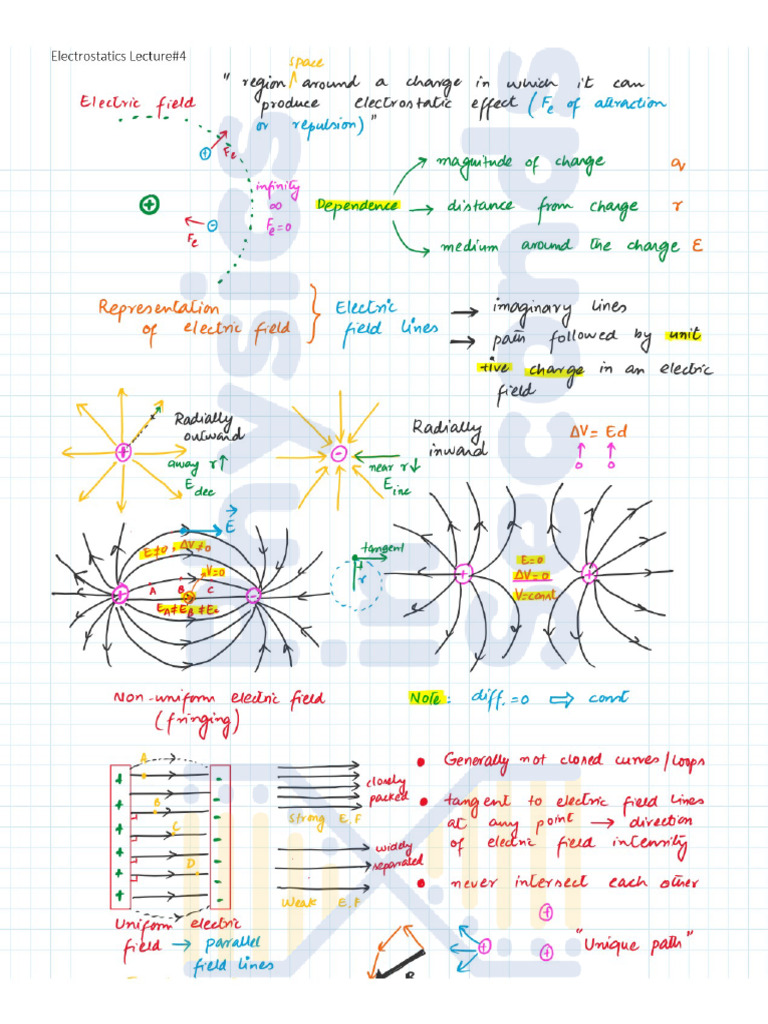 Electrostatics Lecture#4
space
" region around a charge in which it can
Electric field produce electrostatic effect (Fe of attraction
or repulsion) "
+ Fe
magnitude of charge q
infinity
∞
Fe=0
+
Dependence → distance from charge r
-
Fe
medium around the charge ε
Representation
of electric field
Electric
field lines
→ imaginary lines
→ path followed by unit
+tive charge in an electric
field
Radially
outward
+
away r↑
E dec
Radially
inward
-
near r↓
E inc
ΔV = Ed
↑ ↑
0 0
E
E≠0, ΔV≠0
V=0
+ A B C -
EA≠EB≠EC
tangent
r
+ +
E=0
ΔV=0
V=const
Non-uniform electric field
(fringing)
Note: diff.=0 ⇒ const
A
B
C
D
+ -
+ -
+ -
+ -
+ -
+ -
closely
packed
strong E.F
widely
separated
Weak E.F
• Generally not closed curves/loops
• tangent to electric field lines
at any point → direction
of electric field intensity
• never intersect each other
Uniform electric
field → parallel
field lines
+
+ +
"Unique path"
Physics
in
Seconds